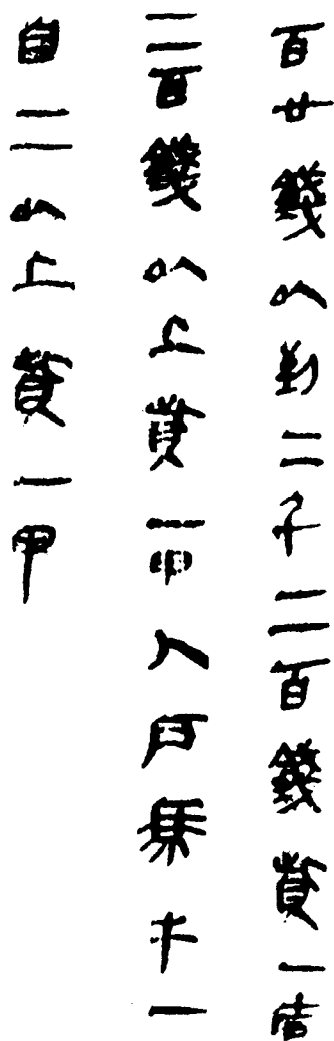 百廿錢以到二千二百錢貲一盾
二百錢以上貲一甲人戶馬牛一
自二以上貲一甲